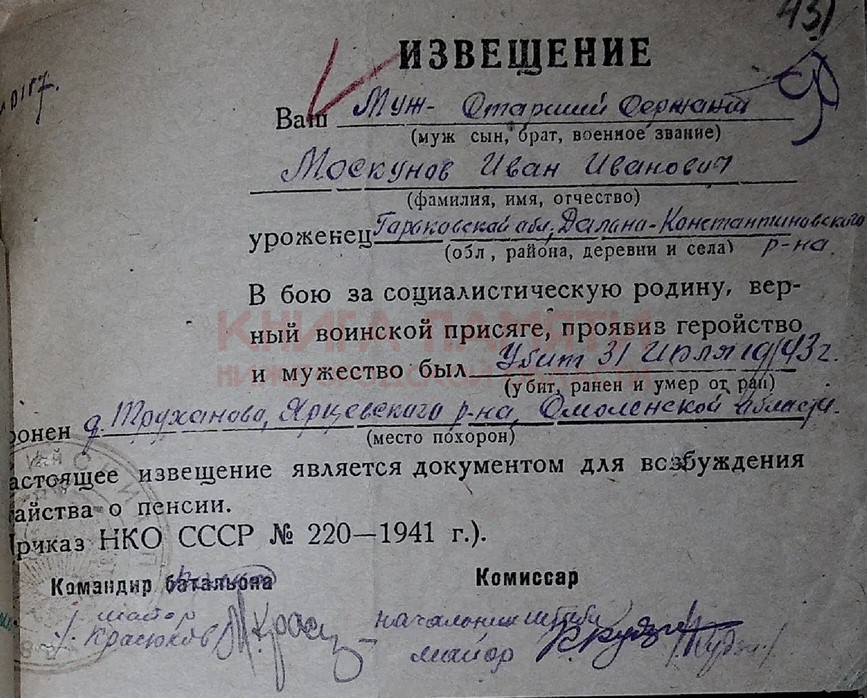 431
ИЗВЕЩЕНИЕ
Ваш Муж- Старший Сержант
(муж сын, брат, военное звание)
Москунов Иван Иванович
(фамилия, имя, отчество)
уроженец Горьковской обл, Далана-Константиновского
(обл, района, деревни и села) р-на
В бою за социалистическую родину, вер-
КНИГА ПАМЯТИ
ный воинской присяге, проявив геройство
и мужество был Убит 31 Июля 1943 г.
(убит, ранен и умер от ран)
ронен д. Труханово, Ярцевского р-на, Смоленской области.
(место похорон)
астоящее извещение является документом для возбуждения
айства о пенсии.
риказ НКО СССР № 220—1941 г.).
Командир батальона Комиссар
майор начальник штаба
Красюков майор